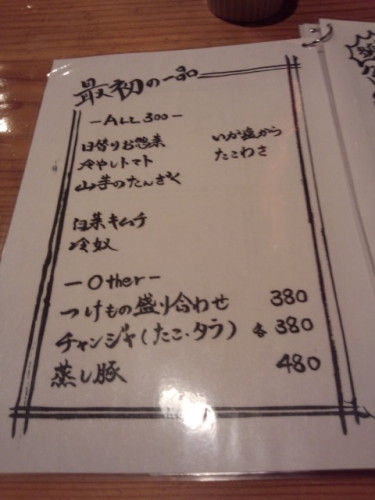 最初の一品
-ALL 300-
日替りお惣菜
いか塩から
冷やしトマト
たこわさ
山芋のたんざく
白菜キムチ
冷奴
-Other-
つけもの盛り合わせ 380
チャンジャ(たこ・タラ) 各380
蒸し豚 480